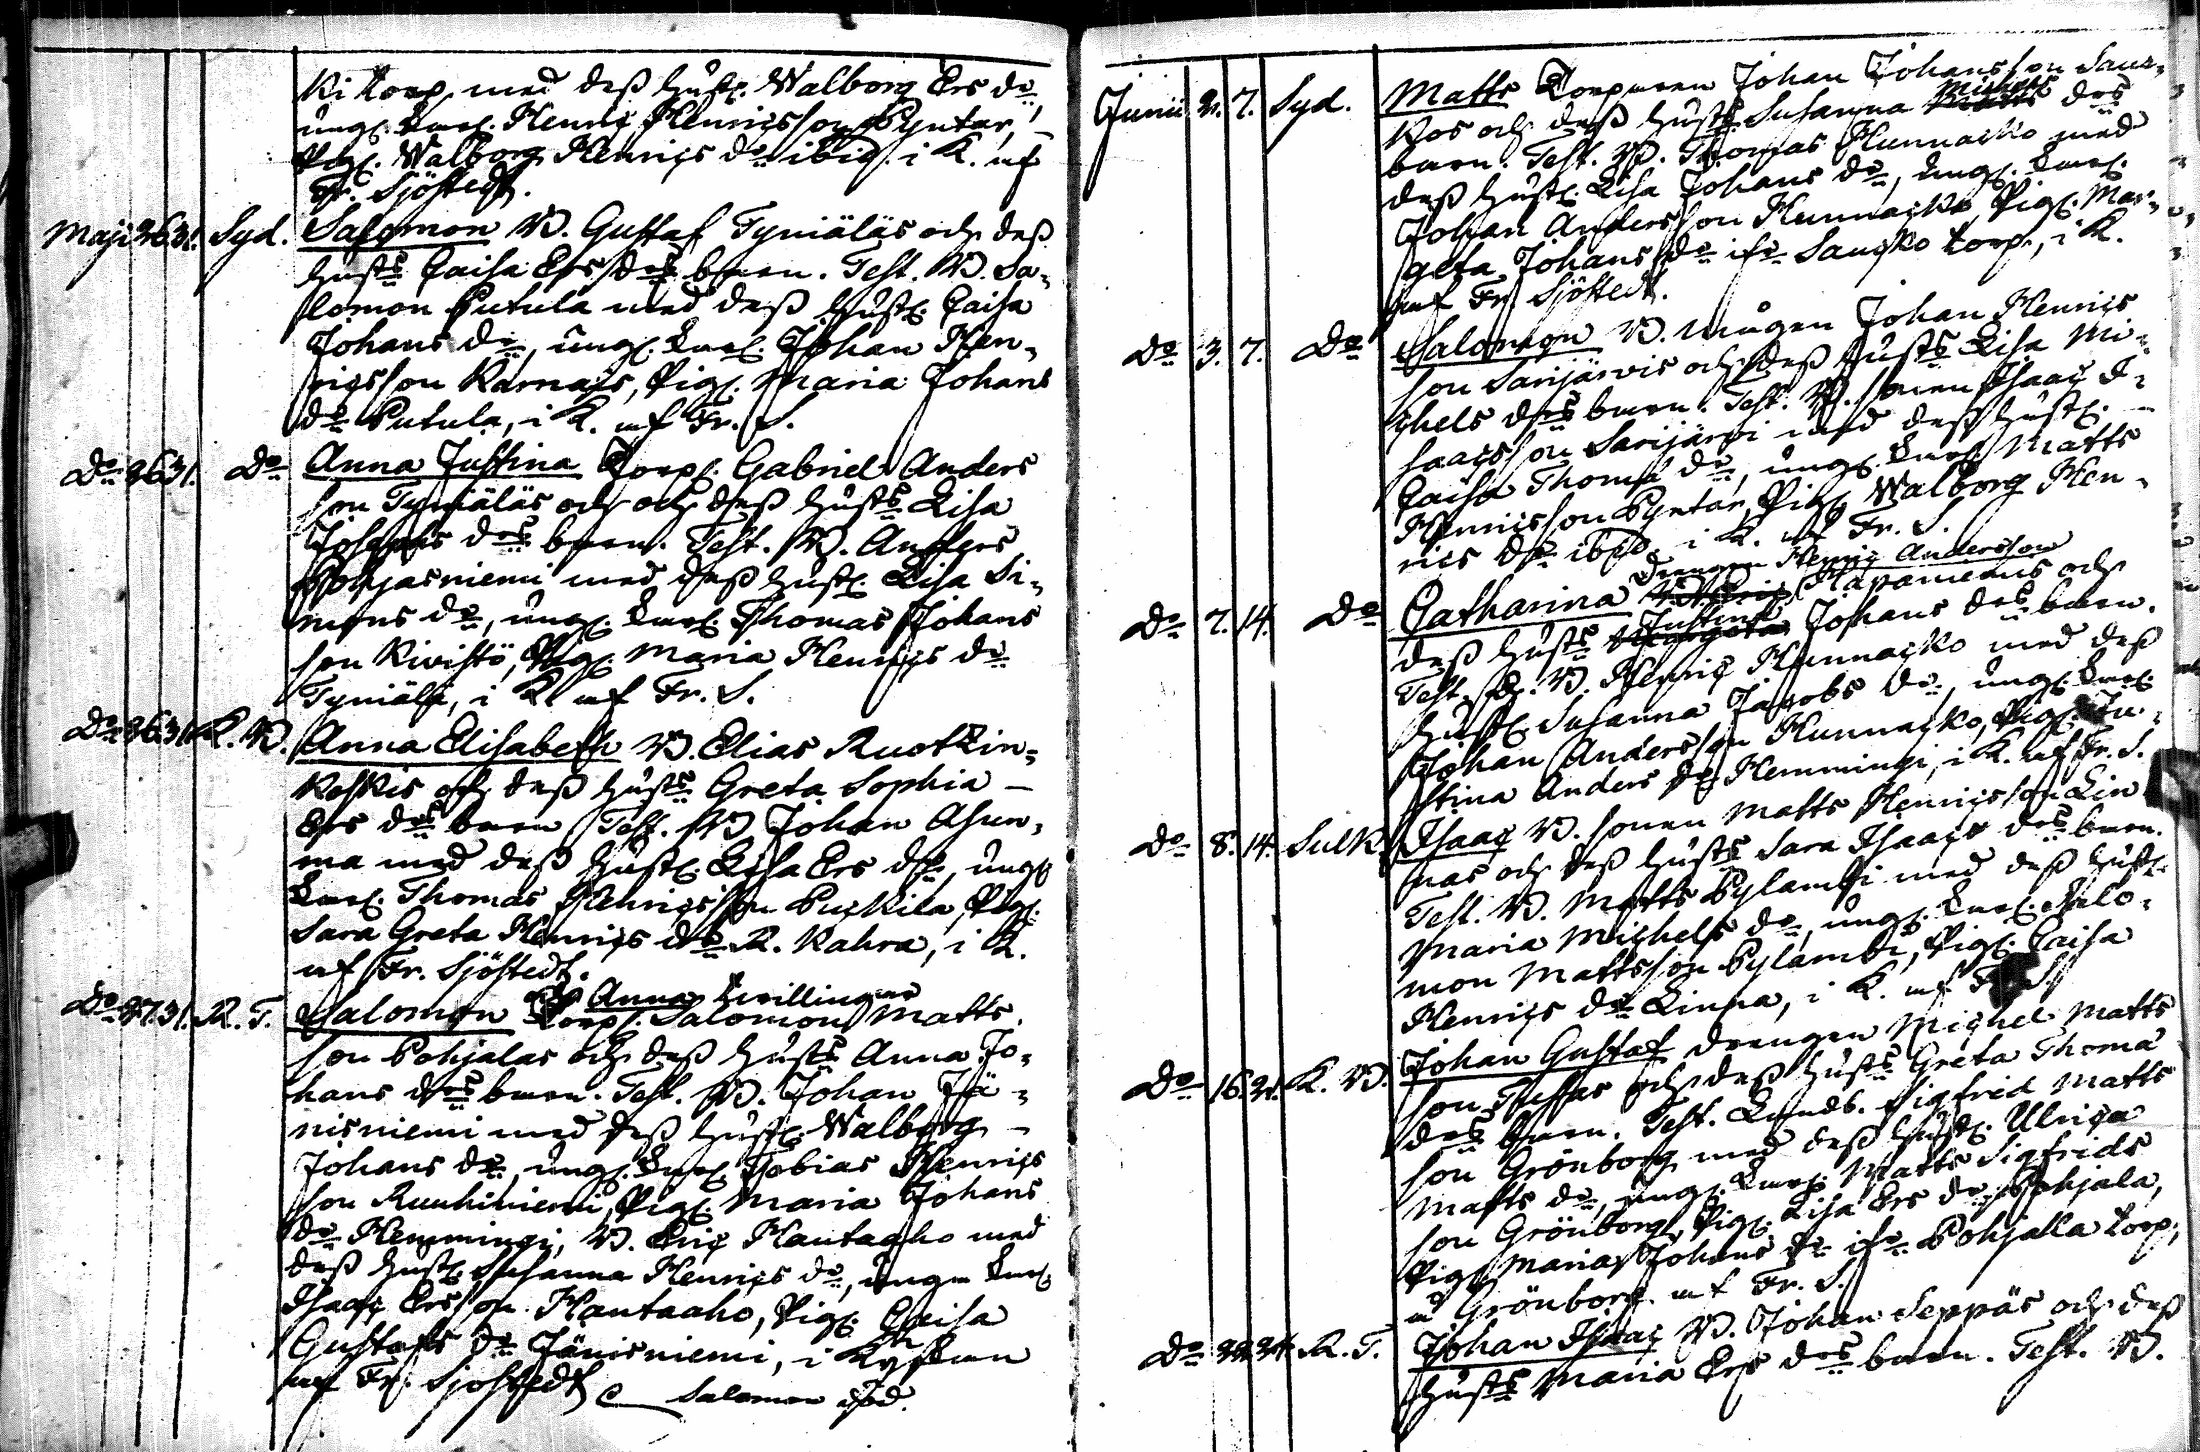 ki torp, med deß hust. Walborg Ers dr
ungk. Henric Henricsson Pyntar,
Pig. Walborg Henrics dr ibid. i K. af
Fr. Sjöstedt.
Maji 26. 31. Syd. Salomon B. Gustaf Tyniäläs och deß
hustrs Caisa Ers drs barn. Test. B. Sa-
lomon Putula med deß hust. Caisa
Johans dr, ung. Johan Hen-
ricsson Karnais, Pig. Maria Johans
dr Putula, i K. af Fr. S.
Do 26. 31. Do Anna Justina Torp. Gabriel Anders
son Tyniäläs och och deß hustrs Lisa
Johans drs barn. Test. B. Anders
Pohjasniemi med deß hust. Lisa Si-
mons dr, ung. Thomas Johans
son Kivistö, Pig. Maria Henrics dr
Tyniälä, i K. af Fr. S.
Do 26. 31. K. B. Anna Elisabeth B. Elias Ruotzin-
koskis och deß hustrs Greta Sophia
Ers drs barn Test. B. Johan Asun-
ma med deß hust. Lisa Ers dr, ung.
Thomas Henricsson Puckila, Pig.
Sara Greta Henrics dr R. Kahra, i K.
af Fr. Sjöstedt.
och Anna tvillingar
Do 27. 31. R. T. Salomon Torp. Salomon Matts
son Pohjalas och deß hustrs Anna Jo-
hans drs barn. Test. B. Johan Jä-
nisniemi med deß hust. Walborg
Johans dr, ung. Tobias Henrics
son Ruuhiniemi, Pig. Maria Johans
dr Hemmingi, B. Eric Hautaaho med
deß hust. Susanna Henrics dr, ung.
Isaac Ersson Hautaaho, Pig. Caisa
Gustafs dr Jänisniemi, i Kyrkan
af Fr. Sjöstedt Salomon död.
Junii 2. 7. Syd. Matts Torparen Johan Johansson Saus-
kos och deß hustrs Susanna Michels drs
barn. Test. B. Thomas Hunnacko med
deß hust. Lisa Johans dr, ung.
Johan Andersson Hunnacko, Pig. Mar-
geta Johans dr ifr Saucko torp, i K.
af Fr. Sjöstedt.
Do 3. 7. Do Salomon B. mågen Johan Henrics
son Sarijärvis och deß hustrs Lisa Mi-
chels drs barn. Test. B. sonen Isaac I-
saacsson Sarijärvi med deß hust.
Caisa Thoma dr, ung. Matts
Henricsson Pyntar, Pig. Walborg Hen-
rics dr ibid. i K. af Fr. S.
Drengen Henric Andersson
Do 7. 14. Do Catharina Haapaniemis och
deß hustrs Justina Johans drs barn.
Test. B. Henric Hunnacko med deß
hust. Susanna Jacobs dr, ung.
Johan Andersson Hunnacko, Pig. Ju-
stina Anders dr Hemmingi, i K. af Fr. S.
Do 8. 14. Sulk. Isaac B. sonen Matts Henricsson Lin
nas och deß hustrs Sara Isaacs drs barn.
Test. B. Matts Pylambi med deß hust.
Maria Michels dr, ung. Salo-
mon Mattsson Pylambi, Pig. Caisa
Henrics dr Linna, i K. af Fr. S.
Do 16. 21. K. B. Johan Gustaf drengen Michel Matts
son Tussas och deß hustrs Greta Thoma
drs barn. Test. Sigfrid Matts
son Grönborg med deß hust. Ulrica
Matts dr, ung. Matts Sigfrids
son Grönborg, Pig. Lisa Ers dr Pohjala,
Pig. Maria Johans dr ifr Pohjalla torp,
Grönborg af Fr. S.
Do 22. 24. R. T. Johan Isaac B. Johan Seppäs och deß
hustrs Maria Ers drs barn. Test. B.